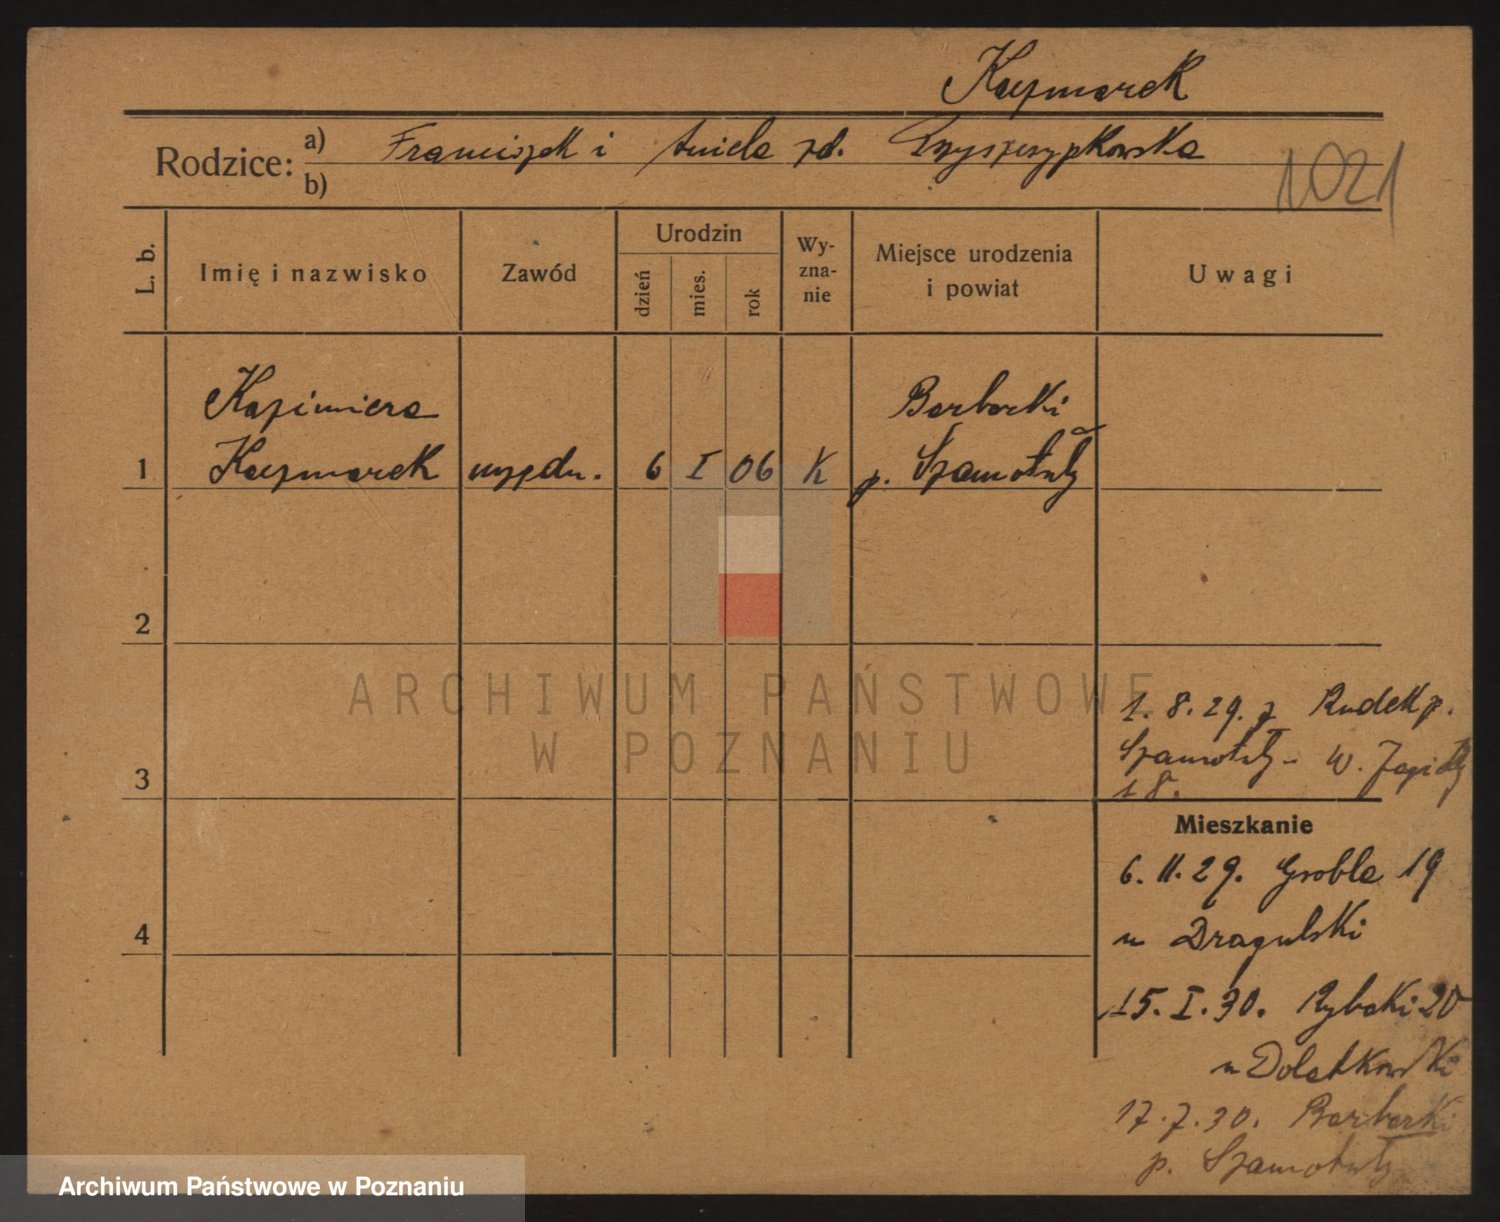 Kaczmarek
Rodzice: a) Franciszek i Aniela zd.
b)
1021
L. b.
Imię i nazwisko
Zawód
Urodzin
dzień
mies.
rok
Wy-
zna-
nie
Miejsce urodzenia
i powiat
Uwagi
Kazimiera
Kaczmarek
1
urzędn.
6
I
06
K
Barborki
p. Szamotuły
2
3
4
1. 8. 29. z Rudek p.
Szamotuły - W.
18.
Mieszkanie
6. II. 29. Grobla 19
u Dragulski
15. I. 30. Rybaki 20
u Dolatkowski
17. 7. 30. Barborki
p. Szamotuły
ARCHIWUM PAŃSTWOWE
W POZNANIU
Archiwum Państwowe w Poznaniu